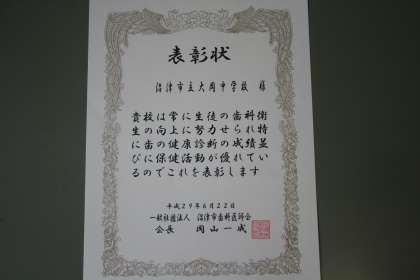 表彰状
沼津市立大岡中学校 様
貴校は常に生徒の歯科衛
生の向上に努力せられ特
に歯の健康診断の成績並
びに保健活動が優れてい
るのでこれを表彰します
平成29年6月22日
一般社団法人 沼津市歯科医師会
会長 岡山一成